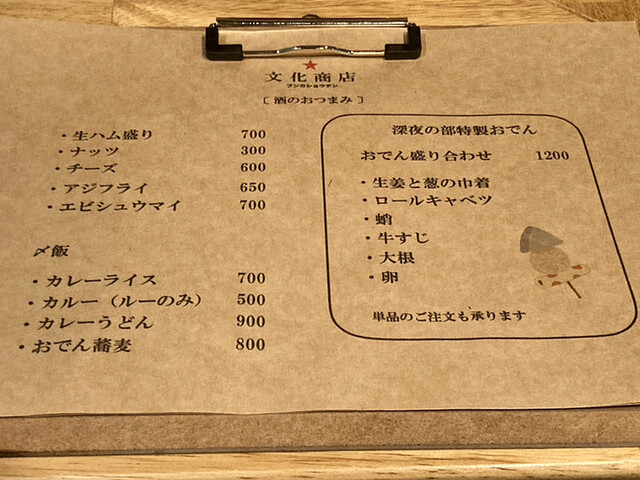 文化商店
ブンカショウテン
［酒のおつまみ］
・生ハム盛り 700
・ナッツ 300
・チーズ 600
・アジフライ 650
・エビシュウマイ 700
〆飯
・カレーライス 700
・カルー（ルーのみ） 500
・カレーうどん 900
・おでん蕎麦 800
深夜の部特製おでん
おでん盛り合わせ 1200
・生姜と葱の巾着
・ロールキャベツ
・蛸
・牛すじ
・大根
・卵
単品のご注文も承ります